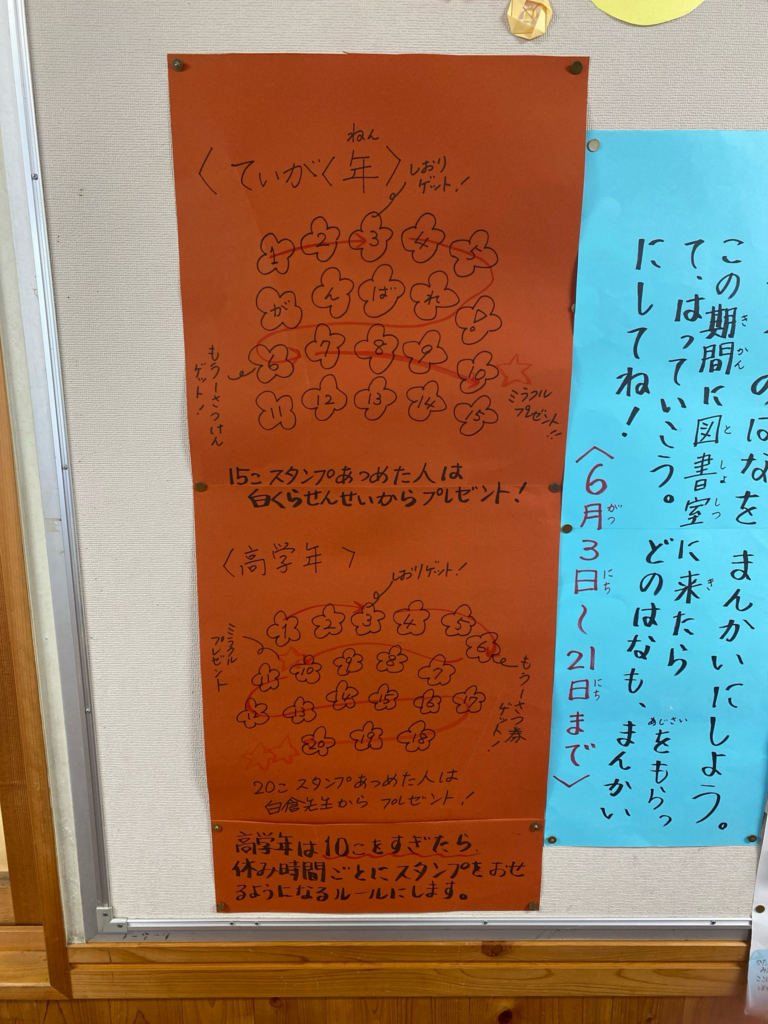 〈ていがく年〉
ねん
しおり
ゲット！
1 2 3 4 5
がんばれ！
6 7 8 9 10
11 12 13 14 15
もう一さつけん
ゲット！
ミラクル
プレゼント!!
15こ スタンプあつめた人は
白くらせんせいから プレゼント！
〈高学年 〉
しおりゲット！
1 2 3 4 5
6
11 10 9 8 7
12 13 14 15 16 17
20 19 18
ミラクル
プレゼント
もう一さつ券
ゲット！
20こ スタンプあつめた人は
白倉先生から プレゼント！
高学年は10こをすぎたら、
休み時間ごとにスタンプをおせ
るようになるルールにします。
のはなを まんかいにしよう。
この期間に図書室に来たら
きかん としょしつ き
あじさいをもらっ
て、はっていこう。どのはなも、まんかい
にしてね！
〈6月3日〜21日まで〉
がつ にち にち